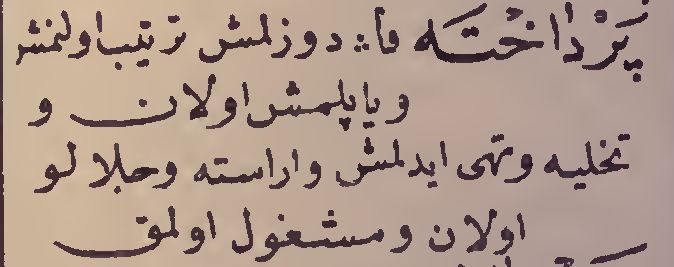 پَرْدَاخْتَه فا: دوزلمش ترتيب اولنمش
و ياپلمش اولان و
تخليه وتهى ايدلمش واراسته وجلالو
اولان ومشغول اولمق